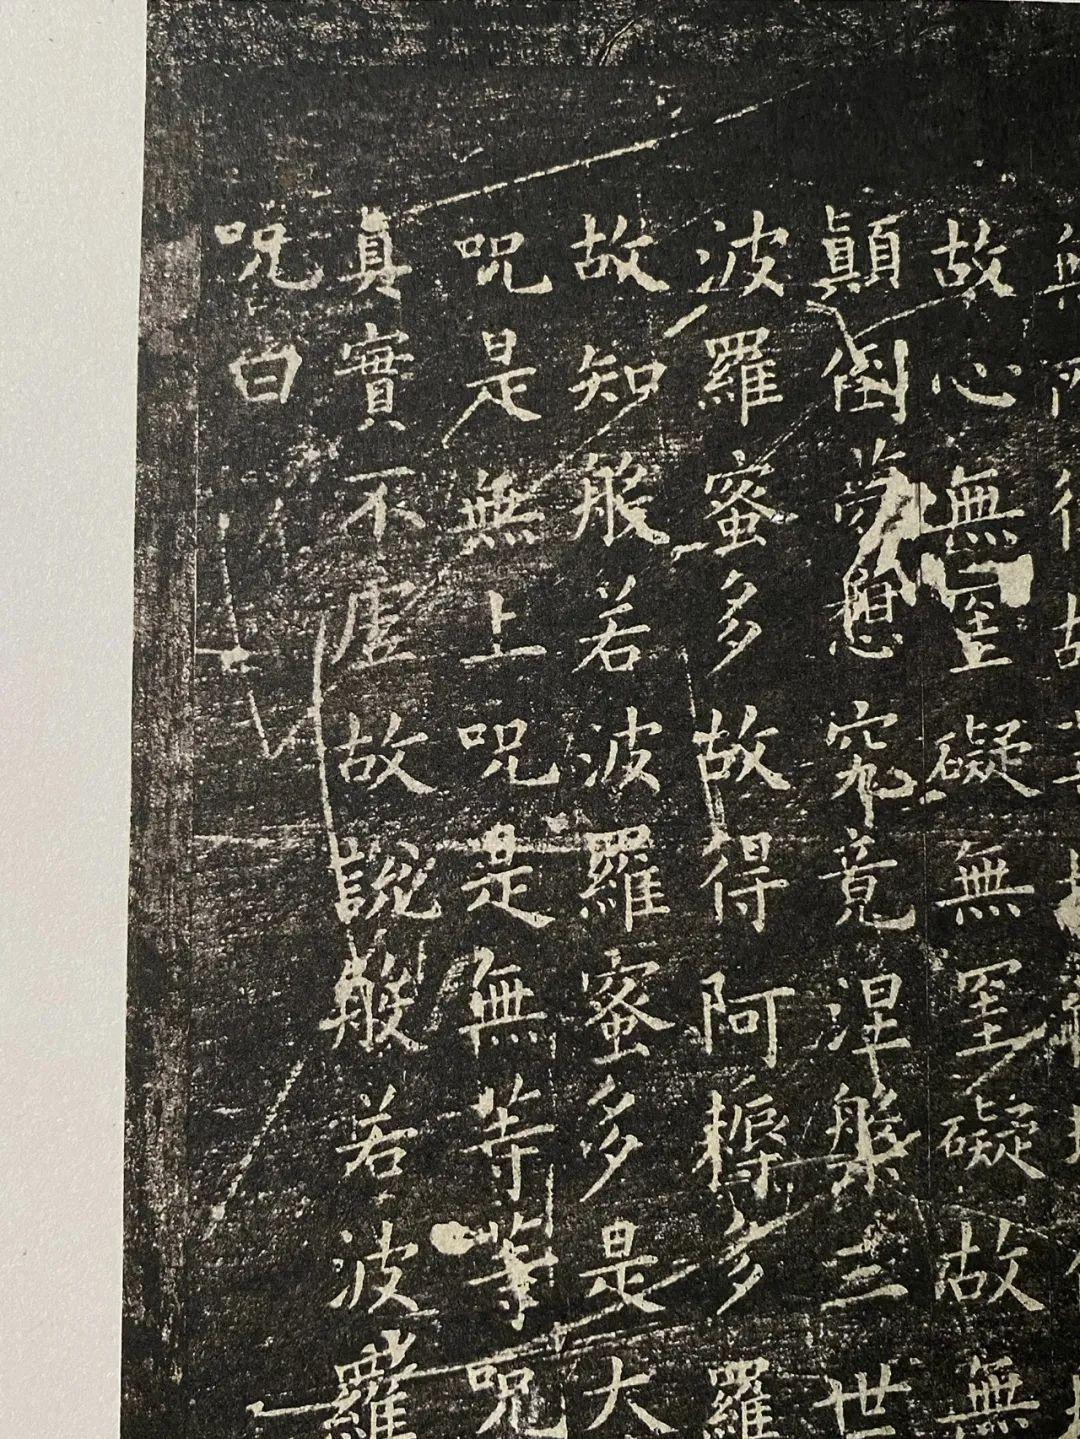 故心無罣礙無罣礙故無
顛倒夢想究竟涅槃三世
波羅蜜多故得阿耨多羅
故知般若波羅蜜多是大
呪是無上呪是無等等呪
真實不虛故說般若波羅
呪曰